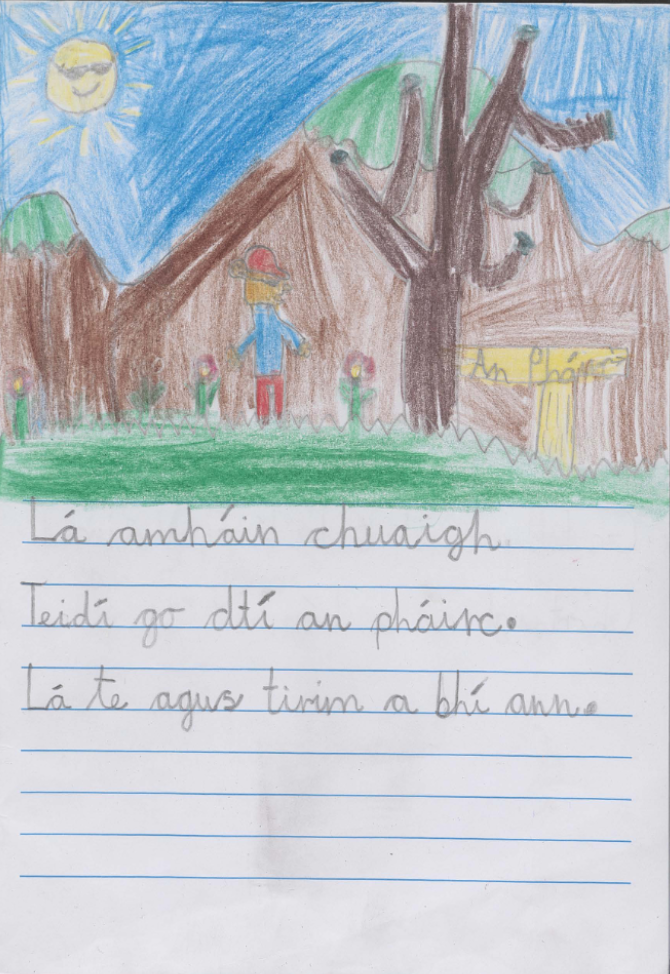 An Pháirc
Lá amháin chuaigh
Teidí go dtí an pháirc.
Lá te agus tirim a bhí ann.